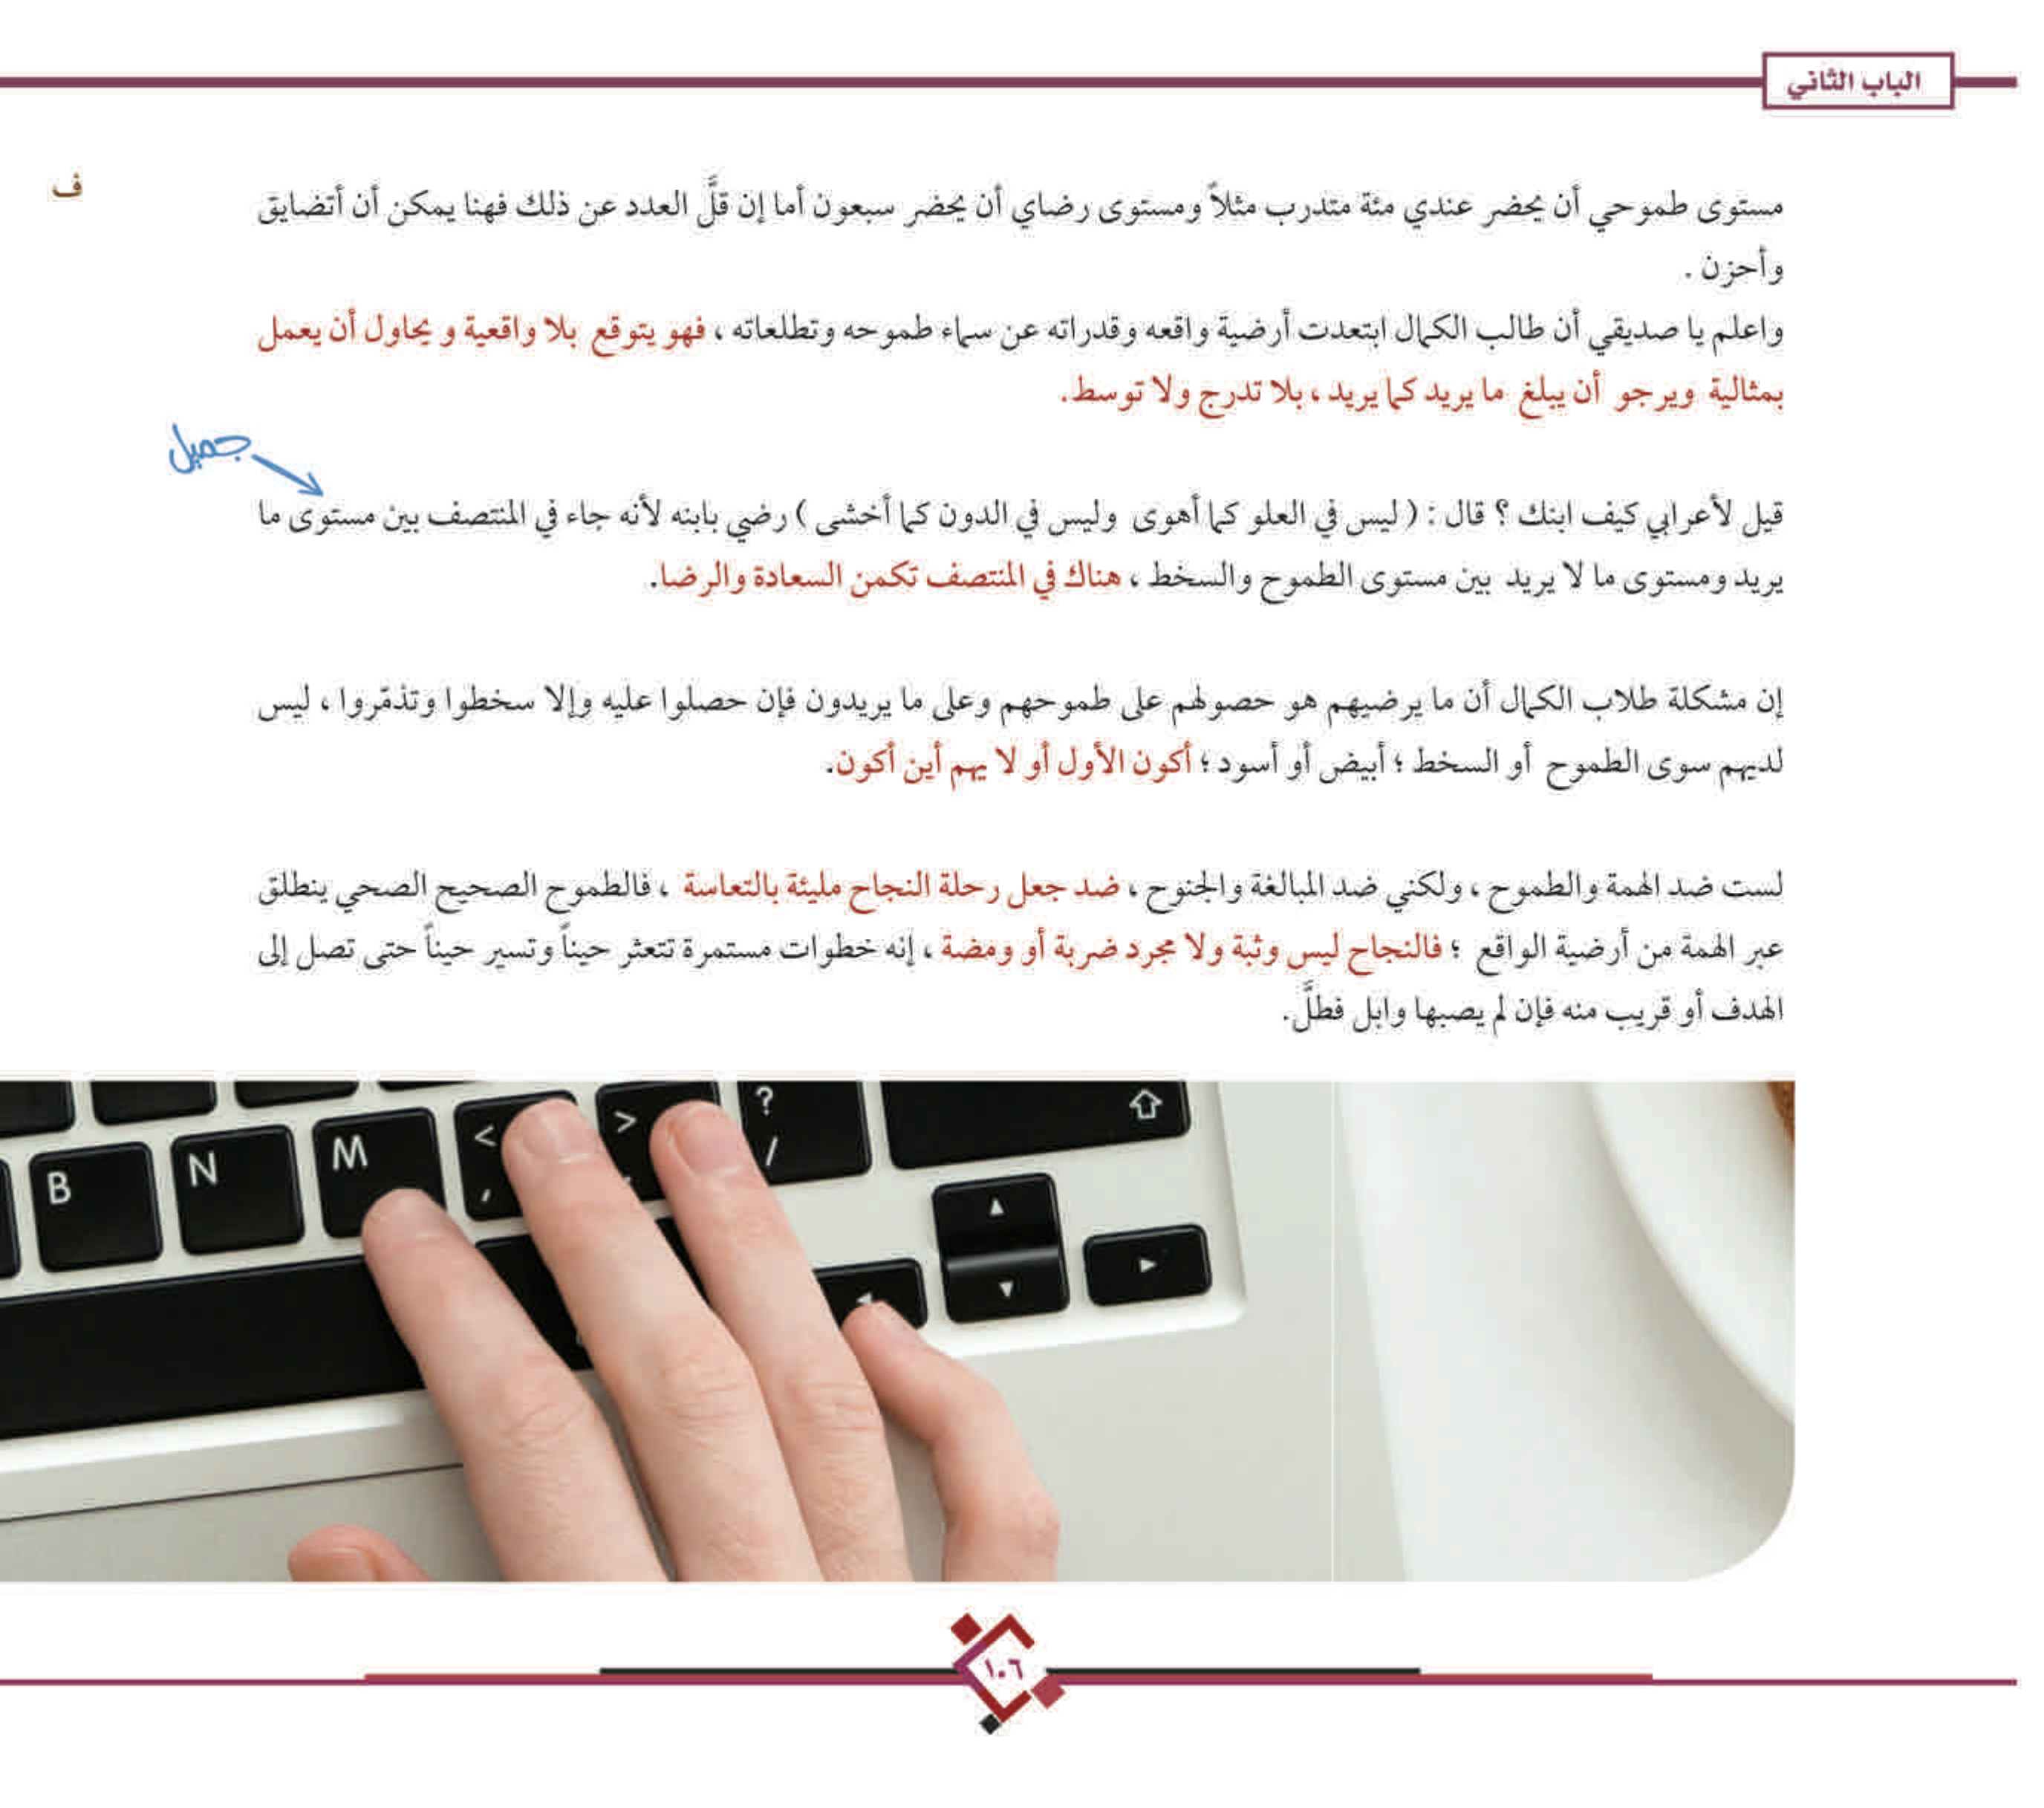 الباب الثاني
ف
مستوى طموحي أن يحضر عندي مئة متدرب مثلاً ومستوى رضاي أن يحضر سبعون أما إن قلَّ العدد عن ذلك فهنا يمكن أن أتضايق
وأحزن .
واعلم يا صديقي أن طالب الكمال ابتعدت أرضية واقعه وقدراته عن سماء طموحه وتطلعاته ، فهو يتوقع بلا واقعية و يحاول أن يعمل
بمثالية ويرجو أن يبلغ ما يريد كما يريد ، بلا تدرج ولا توسط.
جميل
قيل لأعرابي كيف ابنك ؟ قال : ( ليس في العلو كما أهوى وليس في الدون كما أخشى ) رضي بابنه لأنه جاء في المنتصف بين مستوى ما
يريد ومستوى ما لا يريد بين مستوى الطموح والسخط ، هناك في المنتصف تكمن السعادة والرضا.
إن مشكلة طلاب الكمال أن ما يرضيهم هو حصولهم على طموحهم وعلى ما يريدون فإن حصلوا عليه وإلا سخطوا وتذمّروا ، ليس
لديهم سوى الطموح أو السخط ؛ أبيض أو أسود ؛ أكون الأول أو لا يهم أين أكون.
لست ضد الهمة والطموح ، ولكني ضد المبالغة والجنوح ، ضد جعل رحلة النجاح مليئة بالتعاسة ، فالطموح الصحيح الصحي ينطلق
عبر الهمة من أرضية الواقع ؛ فالنجاح ليس وثبة ولا مجرد ضربة أو ومضة ، إنه خطوات مستمرة تتعثر حيناً وتسير حيناً حتى تصل إلى
الهدف أو قريب منه فإن لم يصبها وابل فطلَّ.
< > ?
M , /
N
B
١٠٦